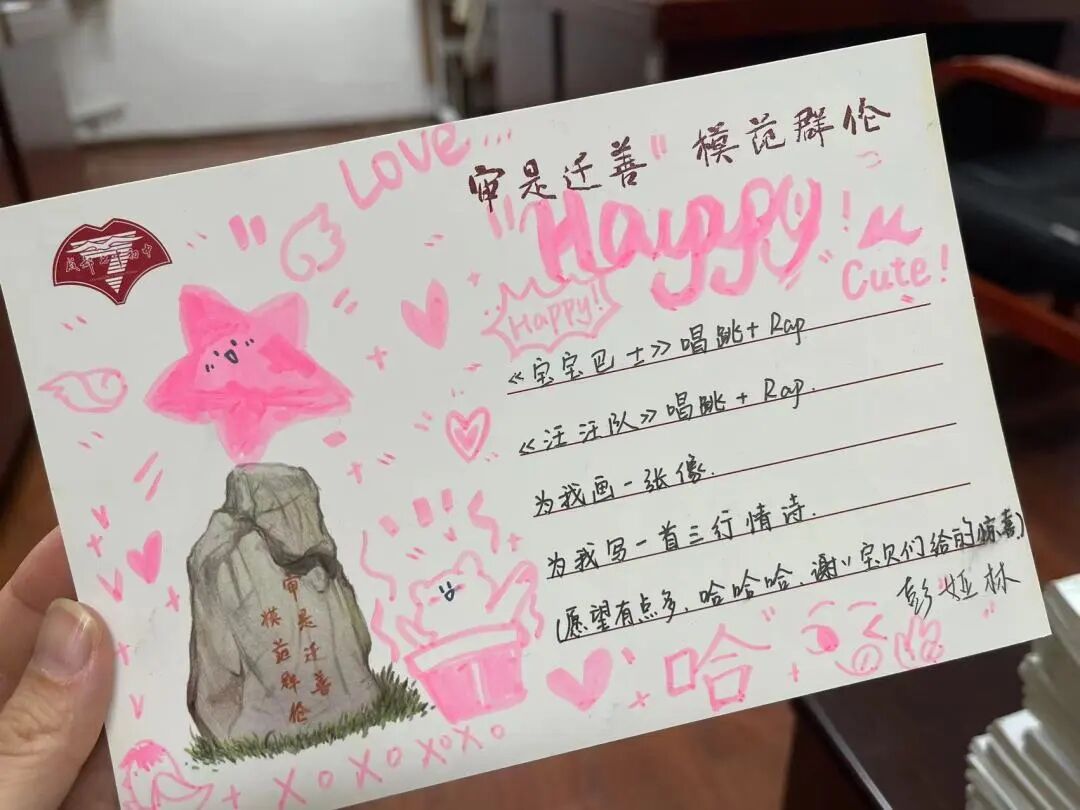 Love...
审是迁善 模范群伦
Happy!
Cute!
Happy!
《宝宝巴士》唱跳+Rap
《汪汪队》唱跳+Rap.
为我画一张像.
为我写一首三行情诗.
(愿望有点多、哈哈哈、谢谢宝贝们给的惊喜)
彭娅林
审是迁善
模范群伦
哈
+XOXOXOXO